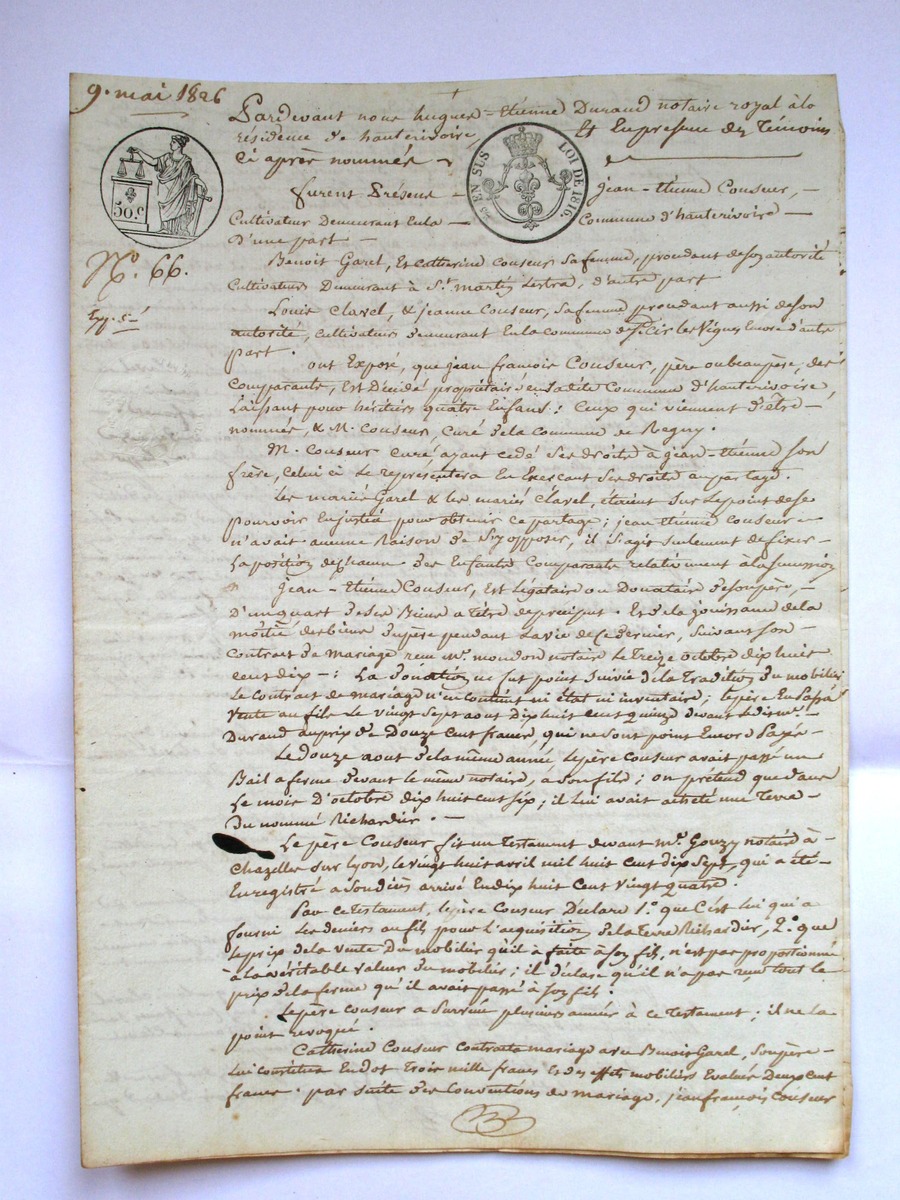 9. mai 1826
Pardevant nous hugues-Etienne Durand notaire royal à la
résidence de hauterivoire, Et En presence des Témoins
Ci après nommés
50 C
EN SUS LOI DE 1816
furent Présens jean-Etienne Couseur,
Cultivateur Demeurant En la Commune d'hauterivoire
D'une part
No. 66.
Benoit Garel, Et Catherine Couseur Sa femme, procedant de son autorité
Cultivateurs Demeurant à St. martin Lestra, d'autre part
Louis Clavel, & jeanne Couseur, Sa femme procedant aussi de son
autorité, Cultivateurs demeurant En la Commune de les Vignes Encore d'autre
part.
ont Exposé, que jean françois Couseur, père ou beaupère, des
Comparants, Est Décédé propriétaire en Sadite Commune D'hauterivoire
Laissant pour héritiers quatre Enfans: Ceux qui viennent d'être
nommés, & M. Couseur, Curé de la Commune de Regny.
M. Couseur Curé ayant cedé Ses droits à jean-Etienne Son
frère, Celui ci Le représentera En Exerçant Ses droits au partage.
Les mariés Garel & les mariés Clavel, étaient Sur Le point de Se
pourvoir En justice pour obtenir Ce partage; jean Etienne Couseur
n'avait aucune Raison de S'y opposer, il S'agit Seulement de fixer
La position de chacun des Enfants Comparants relativement à la Succession
jean-Etienne Couseur, Est Légataire ou Donataire de Son père,
D'un quart de Ses Biens a titre de preciput. Et de la jouissance de la
moitié des biens du père pendant La vie de Ce dernier, Suivant Son
Contrat de Mariage recu Me. mondon notaire Le Treize octobre dix huit
cent dix: La Donation ne fut point Suivie de la Tradition du mobilier
Le Contrat de mariage n'en Contient ni état ni inventaire; le père En passa
Vente au fils Le vingt Sept aout Dix huit Cent quinze devant Ledit Me.
Durand au prix de Douze Cent francs, qui ne Sont point Encore Payés
Le Douze aout de la même année, Le père Couseur avait passé un
Bail a ferme devant Le même notaire, a Son fils; on prétend que dans
Le mois D'octobre dix huit cent Six, il Lui avait acheté une Terre
du nommé Richardier.
Le père Couseur fit un Testament devant Me. Gouzy notaire à
Chazelles Sur Lyon, Le vingt huit avril mil huit Cent dix Sept, qui a été
Enregistré a Son décès arrivé En dix huit Cent Vingt quatre.
Par Ce Testament, Le père Couseur Déclare 1.º que C'est lui qui a
fourni Les deniers au fils pour L'acquisition de la Terre Richardier, 2.º que
Le prix de la vente du mobilier qu'il a faite à Son fils, n'est pas proportionné
à la véritable valeur du mobilier; il déclare qu'il n'a pas recu tout Le
prix de la ferme qu'il avait passé à Son fils.
Le père Couseur a Survécu plusieurs années à ce Testament; il ne l'a
point revoqué.
Catherine Couseur Contracta mariage avec Benoit Garel, Son père
Lui Constitua En dot trois mille francs Et des effets mobiliers Evalués Deux cent
francs. par Suite des Conventions du mariage, jean françois Couseur